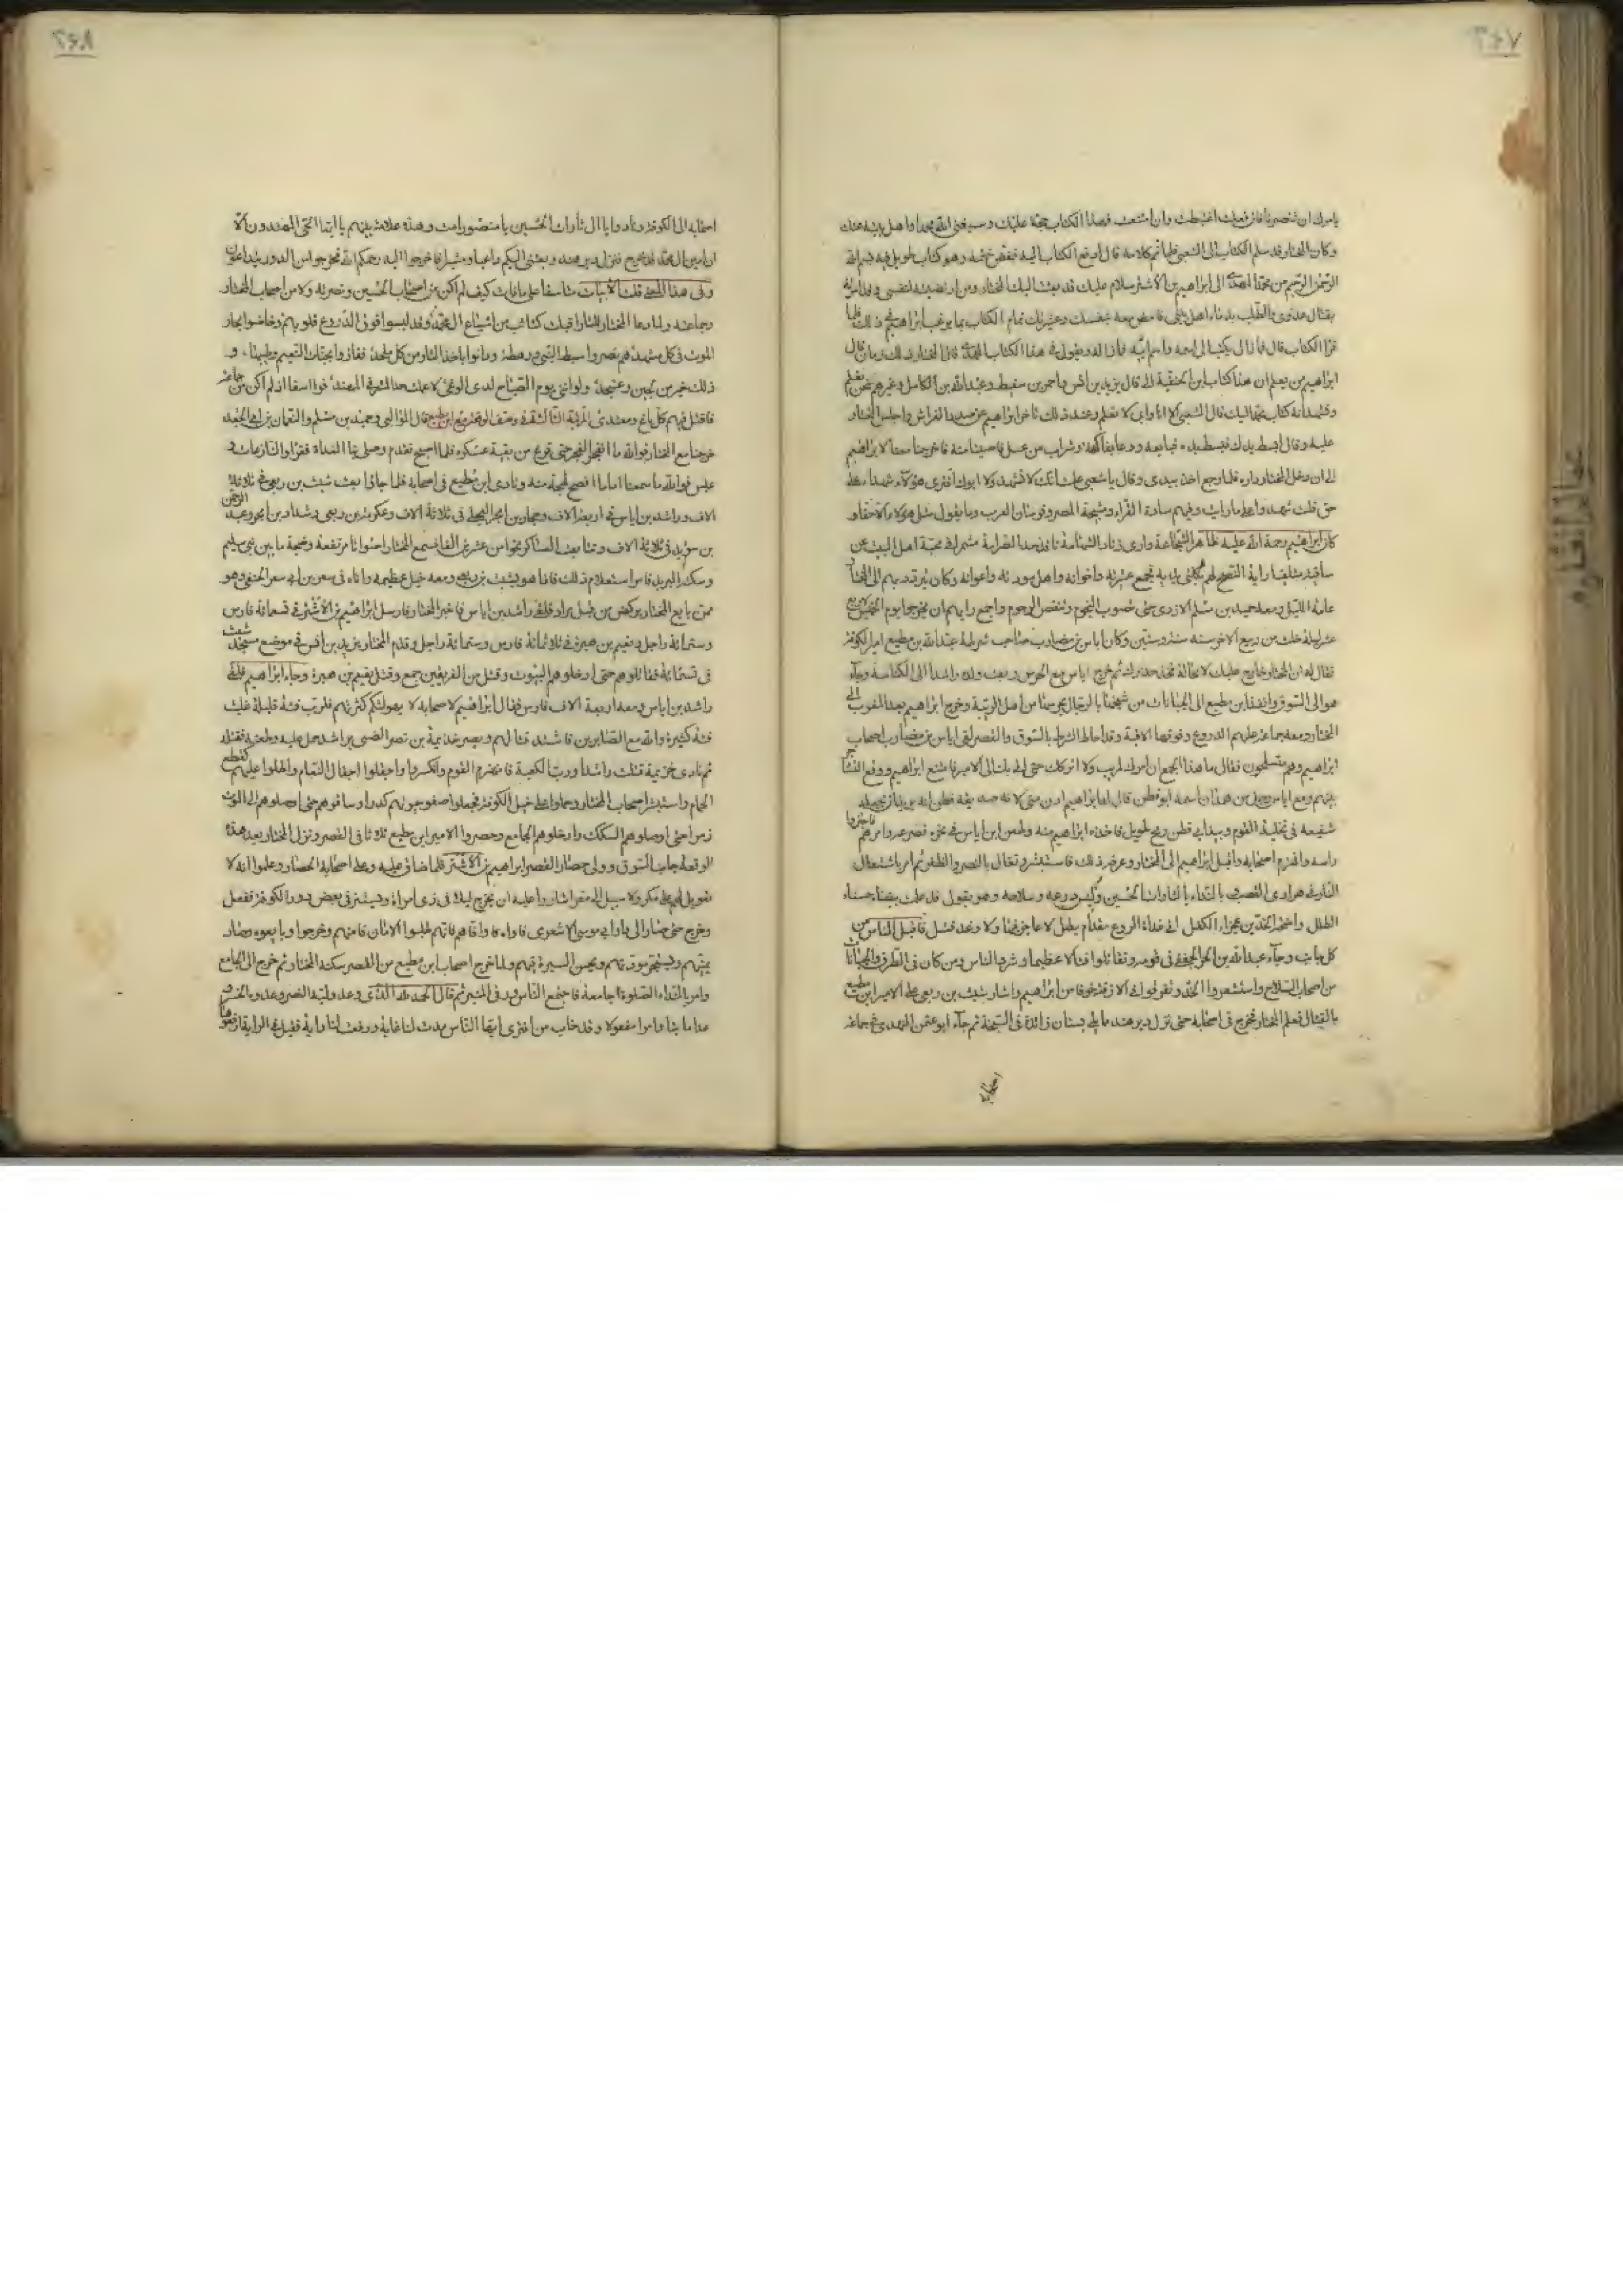 ٢٦٧
يامرك ان تنصرنا فان فعلت اغتبطت وان امتنعت فهذا الكتاب حجة عليك وسيغنى الله محمدا واهل بيته عنك
وكان المختار قد سلم الكتاب الى الشعبى فلما تم كلامه قال ادفع الكتاب اليه ففض ختمه وهو كتاب طويل فيه بسم الله
الرحمن الرحيم من محمد المهدى الى ابراهيم بن الاشتر سلام عليك قد بعثت اليك المختار ومن ارتضيته لنفسى وقد امرته
بقتال عدوى والطلب بدماء اهل بيتى فامض معه بنفسك وعشيرتك تمام الكتاب بما يرغب ابراهيم فى ذلك فلما
قرا الكتاب قال ما زال يكتب الى اسمه واسم ابيه فما زال ويقول فى هذا الكتاب المهدى قال المختار ذلك زمان قال
ابراهيم من يعلم ان هذا كتاب ابن الحنفية الى قال يزيد بن انس واحمر بن سقيط وعبد الله بن الكامل وغيرهم نحن نعلم
ونشهد انه كتاب محمد اليك قال الشعبى الا انا وابى لا نعلم وعند ذلك تاخر ابراهيم عن صدر الفراش واجلس المختار
عليه وقال ابسط يدك فبسط يده فبايعه ودعا بفاكهة وشراب من عسل فاصبنا منه فاخرجنا معنا ابراهيم
الى ان دخل المختار داره فلما رجع اخذ بيدى وقال يا شعبى علمت انك لا تشهد ولا ابوك افترى هؤلاء شهدوا على
حق قلت شهدوا على ما رايت وفيهم سادة القراء ومشيخة المصر وفرسان العرب وما يقول مثل هؤلاء الا حقا و
كان ابراهيم رحمة الله عليه ظاهر الشجاعة وارى زناد الشهامة نافذ حد الصرامة مشمرا فى محبة اهل البيت عن
ساقيه متلقيا راية النصح لهم بكلتى يديه فجمع عشيرته واخوانه واهل مودته واعوانه وكان يتردد بهم الى المختار
عامة الليل ومعه حميد بن مسلم الازدى حتى تصوب النجوم وتنقض الرجوم واجمع رايهم ان يخرجوا يوم الخميس لاربع
عشر ليلة خلت من ربيع الاخر سنة ست وستين وكان اياس بن مضارب صاحب شرطة عبد الله بن مطيع امير الكوفة
فقال له ان المختار خارج عليك لا محالة فخذ حذرك ثم خرج اياس مع الحرس وبعث ولده راشدا الى الكناسة وجاء
هو الى السوق وانفذ ابن مطيع الى الجبانات من شحنها بالرجال يحرسها من اهل الريبة وخرج ابراهيم بعد المغرب الى
المختار ومعه جماعة عليهم الدروع وفوقها الاقبية وقد احاط الشرط بالسوق والقصر لقى اياس بن مضارب اصحاب
ابراهيم وهم متسلحون فقال ما هذا الجمع ان امرك لمريب ولا اتركك حتى اتى بك الى الامير فامتنع ابراهيم ووقع التشاجر
بينهم ومع اياس رجل من همدان اسمه ابو قطن قال له ابراهيم ادن منى لانه صديقه فظن انه يريد ان يجعله
شفيعه فى تخلية القوم وبيد ابى قطن رمح طويل فاخذه ابراهيم منه وطعن ابن اياس فى نحره فصرعه وامرهم فاحتزوا
راسه وانهزم اصحابه واقبل ابراهيم الى المختار وعرفه ذلك فاستبشر وتفال بالنصر والظفر ثم امر باشتعال
النار فى هرادى القصب بالنداء يا لثارات الحسين ولبس درعه وسلاحه وهو يقول قد علمت بيضاء حسناء
الطلل واضحة الخدين عجزاء الكفل انى غداة الروع مقدام بطل لا عاجز فيها ولا وغد فشل فاقبل الناس من
كل جانب وجاء عبد الله بن الحر الجعفى فى قومه وتقاتلوا قتالا عظيما وشرد الناس ومن كان فى الطرق والجبانات
من اصحاب السلاح واستشعروا الحذر وتفرقوا فى الازقة خوفا من ابراهيم واشار شبث بن ربعى على الامير ابن مطيع
بالقتال فعلم المختار فخرج فى اصحابه حتى نزل دير هند مما يلى بستان زائدة فى السبخة ثم جاء ابو عثمن النهدى فى جماعة
اصحابه
٢٦٨
اصحابه الى الكوفة ونادوا يا ال ثارات الحسين يا منصور امت وهذه علامة بينهم يا ايها الحى المهتدون الا
ان امين ال محمد قد خرج فنزل دير هند وبعثنى اليكم داعيا ومبشرا فاخرجوا اليه رحمكم الله فخرجوا من الدور يتداعون
وفى هذا المعنى قلت الابيات متاسفا على ما فات كيف لم اكن من اصحاب الحسين ونصرته ولا من اصحاب المختار
وجماعته ولما دعا المختار للثار اقبلت كتائب من اشياع ال محمد وقد لبسوا فوق الدروع قلوبهم وخاضوا بحار
الموت فى كل مشهد هم نصروا سبط النبى ورهطه ودانوا باخذ الثار من كل ملحد ففازوا بجنات النعيم وطيبها و
ذلك خير من لجين وعسجد ولو اننى يوم الهياج لدى الوغى لاعملت حد المشرفى المهند فوا اسفا اذ لم اكن من حماته
فاقتل فيهم كل باغ ومعتدى المرتبة الثالثة فى وصف الوقعة مع ابن مطيع قال الوالبى وحميد بن مسلم والنعمان بن ابى الجعد
خرجنا مع المختار فوالله ما انفجر الفجر حتى فرغ من بقية عسكره فلما اصبح تقدم وصلى بنا الغداة فقرا والنازعات و
عبس فوالله ما سمعنا اماما افصح لهجة منه ونادى ابن مطيع فى اصحابه فلما جاؤا بعث شبث بن ربعى فى ثلاثة
الاف وراشد بن اياس فى اربعة الاف وحجار بن ابجر العجلى فى ثلاثة الاف وعكرمة بن ربعى وشداد بن ابجر وعبد الرحمن
بن سويد فى ثلاثة الاف وتتابعت العساكر نحوا من عشرين الفا فسمع المختار اصواتا مرتفعة وضجة ما بين بنى سليم
وسكة البريد فامر باستعلام ذلك فاذا هو شبث بن ربعى ومعه خيل عظيمة واتاه فى سعر بن ابى سعر الحنفى وهو
ممن بايع المختار يركض من قبل مراد فلقى راشد بن اياس فاخبر المختار فارسل ابراهيم بن الاشتر فى تسعمائة فارس
وستمائة راجل ونعيم بن هبيرة فى ثلاثمائة فارس وستمائة راجل وقدم المختار يزيد بن انس فى موضع مسجد شبث
فى تسعمائة فقاتلوهم حتى ادخلوهم البيوت وقتل من الفريقين جمع وقتل نعيم بن هبيرة وجاء ابراهيم فلقى
راشد بن اياس ومعه اربعة الاف فارس فقال ابراهيم لاصحابه لا يهولنكم كثرتهم فلرب فئة قليلة غلبت
فئة كثيرة والله مع الصابرين فاشتد قتالهم وبصر خذيمة بن نصر العبسى براشد حمل عليه وطعنه فقتله
ثم نادى خزيمة قتلت راشدا ورب الكعبة فانهزم القوم وانكسروا واجفلوا اجفال النعام واطلوا عليهم كقطع
الغمام واستبشر اصحاب المختار وحملوا على خيل الكوفة فجعلوا صفو حيوتهم كدرا وساقوهم حتى اوصلوهم الى الموت
زمرا حتى اوصلوهم السكك وادخلوهم الجامع وحصروا الامير ابن مطيع ثلاثا فى القصر ونزل المختار بعد هذه
الوقعة جانب السوق وولى حصار القصر ابراهيم بن الاشتر فلما ضاق عليه وعلى اصحابه الحصار وعلموا انه لا
تعويل لهم على مكر ولا سبيل الى مفر اشاروا عليه ان يخرج ليلا فى زى امراة ويستتر فى بعض دور الكوفة ففعل
وخرج حتى صار الى دار ابى موسى الاشعرى فاووه واما هم فانهم طلبوا الامان فامنهم وخرجوا وبايعوه وصار
يمنيهم ويستجر مودتهم ويحسن السيرة فيهم ولما خرج اصحاب ابن مطيع من القصر سكنه المختار ثم خرج الى الجامع
وامر بالنداء الصلوة جامعة فاجتمع الناس ورقى المنبر ثم قال الحمد لله الذى وعد وليه النصر وعدوه الخسر و
عدا ماتيا وامرا مفعولا وقد خاب من افترى ايها الناس مدت لنا غاية ورفعت لنا راية فقيل فى الراية ارفعوها